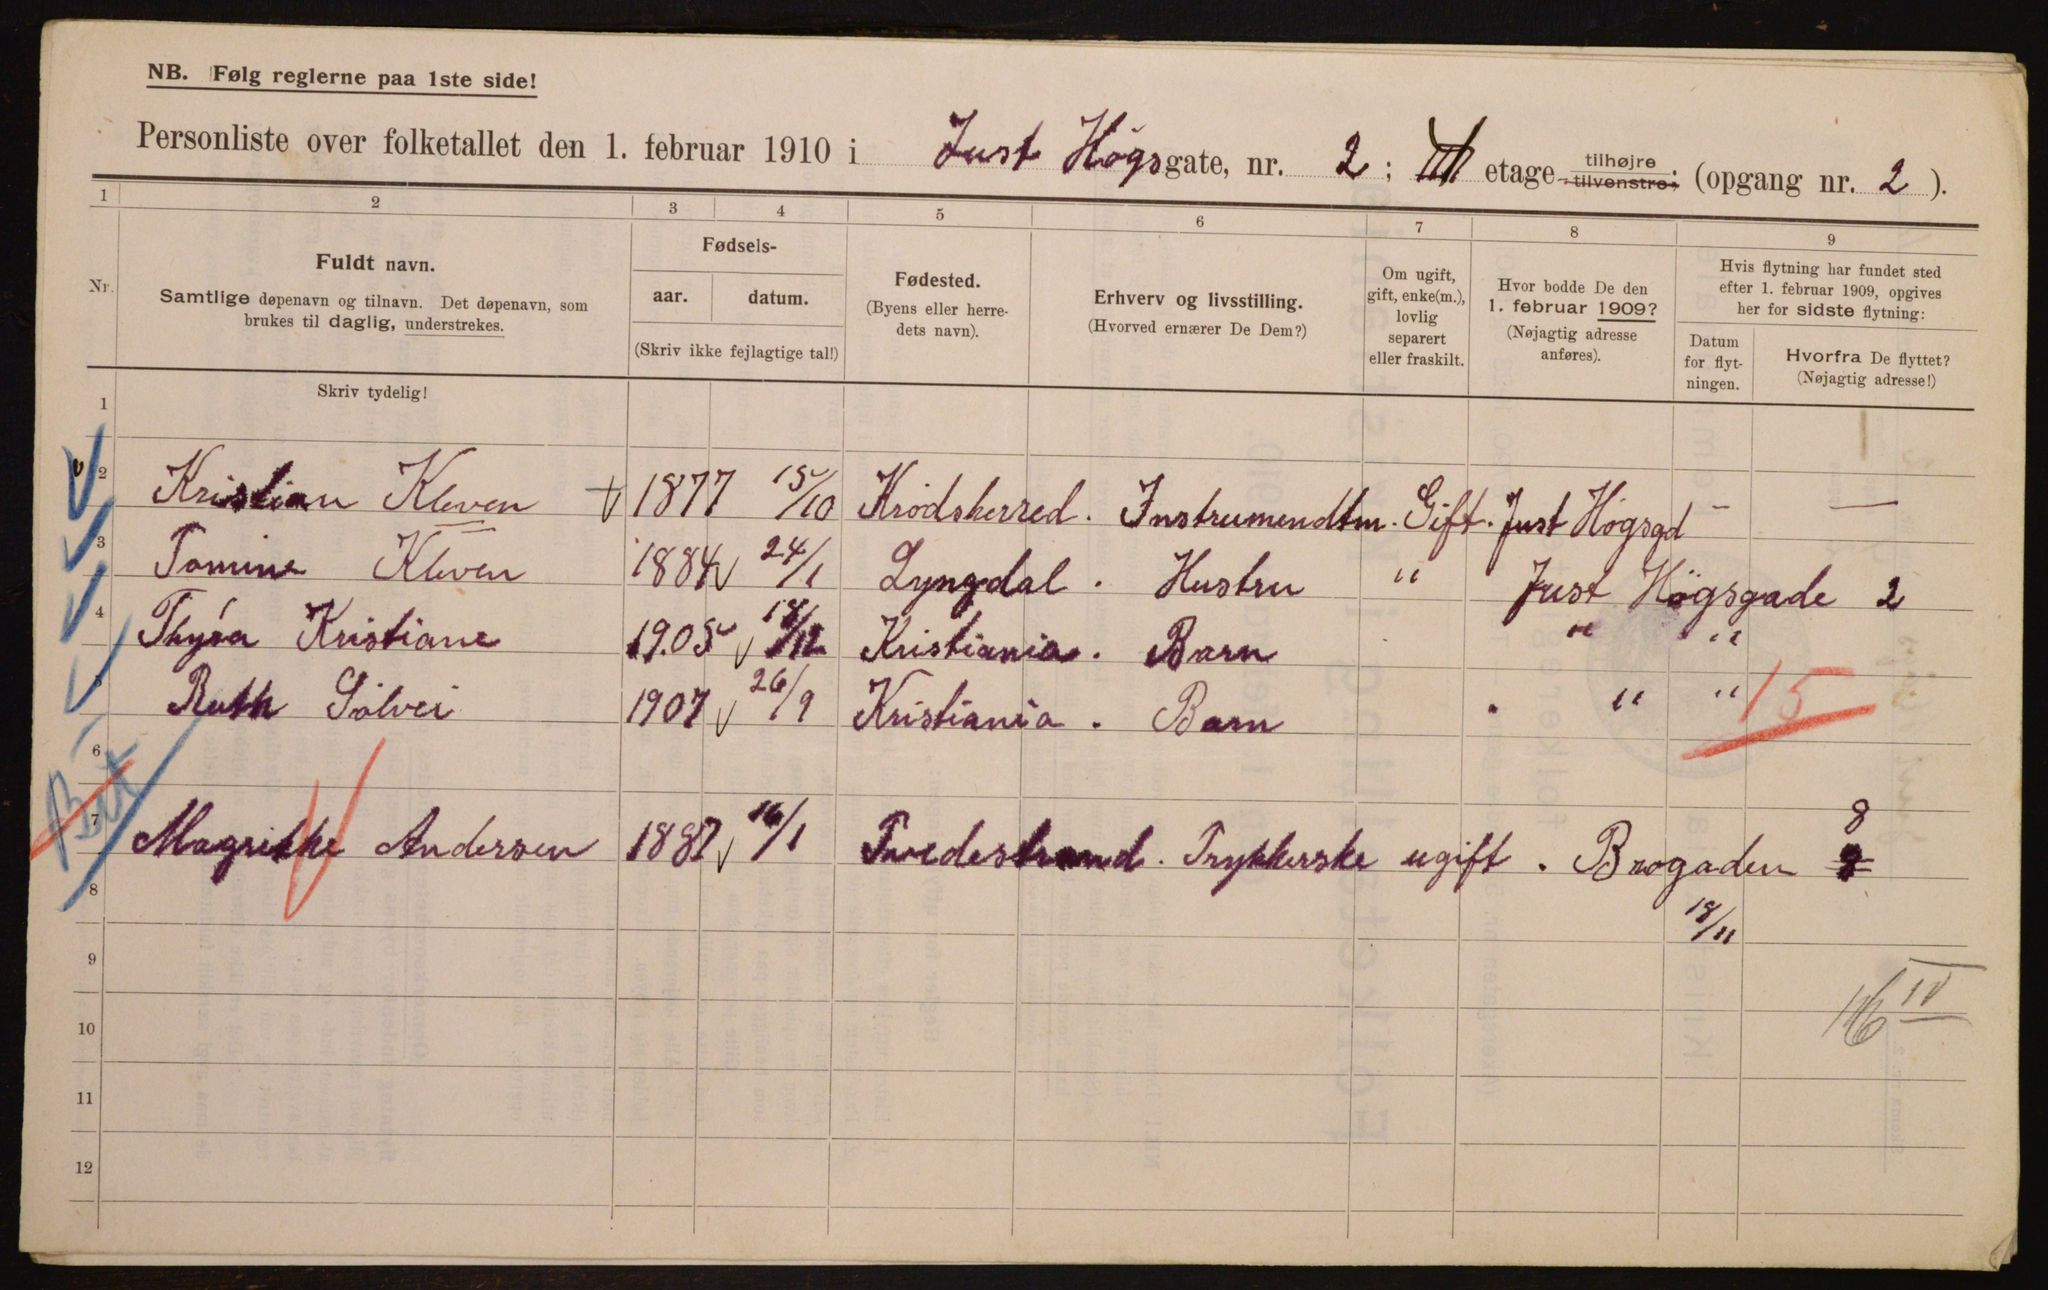 NB. Følg reglerne paa 1ste side!
Personliste over folketallet den 1. februar 1910 i Just Høgsgate, nr. 2; etage tilhøjre tilvenstre; (opgang nr. 2).
1 2 3 4 5 6 7 8 9
Nr.
Fuldt navn.
Samtlige døpenavn og tilnavn. Det døpenavn, som
brukes til daglig, understrekes.
Skriv tydelig!
Fødsels-
aar. datum.
(Skriv ikke fejlagtige tal!)
Fødested.
(Byens eller herre-
dets navn).
Erhverv og livsstilling.
(Hvorved ernærer De Dem?)
Om ugift,
gift, enke(m.),
lovlig
separert
eller fraskilt.
Hvor bodde De den
1. februar 1909?
(Nøjagtig adresse
anføres).
Hvis flytning har fundet sted
efter 1. februar 1909, opgives
her for sidste flytning:
Datum
for flyt-
ningen.
Hvorfra De flyttet?
(Nøjagtig adresse!)
1
2 Kristian Kleven 1877 15/10 Krødsherred. Instrumendtm. Gift. Just Høgsgd — —
3 Tomine Kleven 1884 24/1 Lyngdal. Hustru " Just Högsgade 2
4 Thyra Kristiane 1905 18/12 Kristiania. Barn " "
5 Ruth Sölvei 1907 26/9 Kristiania. Barn " " 15
6
Bet
7 Magrithe Andersen 1887 16/1 Tvedestrand. Trykkerske ugift. Brogaden 8
8 18/11
9
10 116 IV
11
12